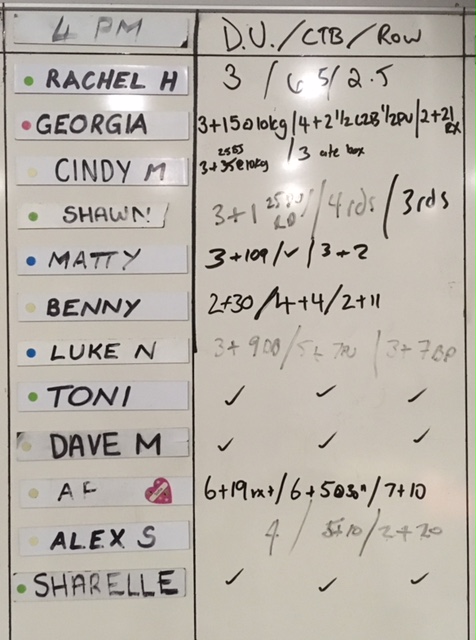 4 PM D.U. / CTB / Row
RACHEL H 3 / 6.5 / 2.5
GEORGIA 3+15@10kg / 4+2 1/2 C2B 1/2PU / 2+21 RX
CINDY M 3+35@10kg / 3 ate box
SHAWN 3+1 / 4 rds / 3 rds
MATTY 3+109 / ✓ / 3+2
BENNY 2+30 / 4+4 / 2+11
LUKE N 3+9DB / 5+7PU / 3+7BP
TONI ✓ ✓ ✓
DAVE M ✓ ✓ ✓
AF 6+19rx+ / 6+5 / 7+10
ALEX S 4 / 5+10 / 2+20
SHARELLE ✓ ✓ ✓